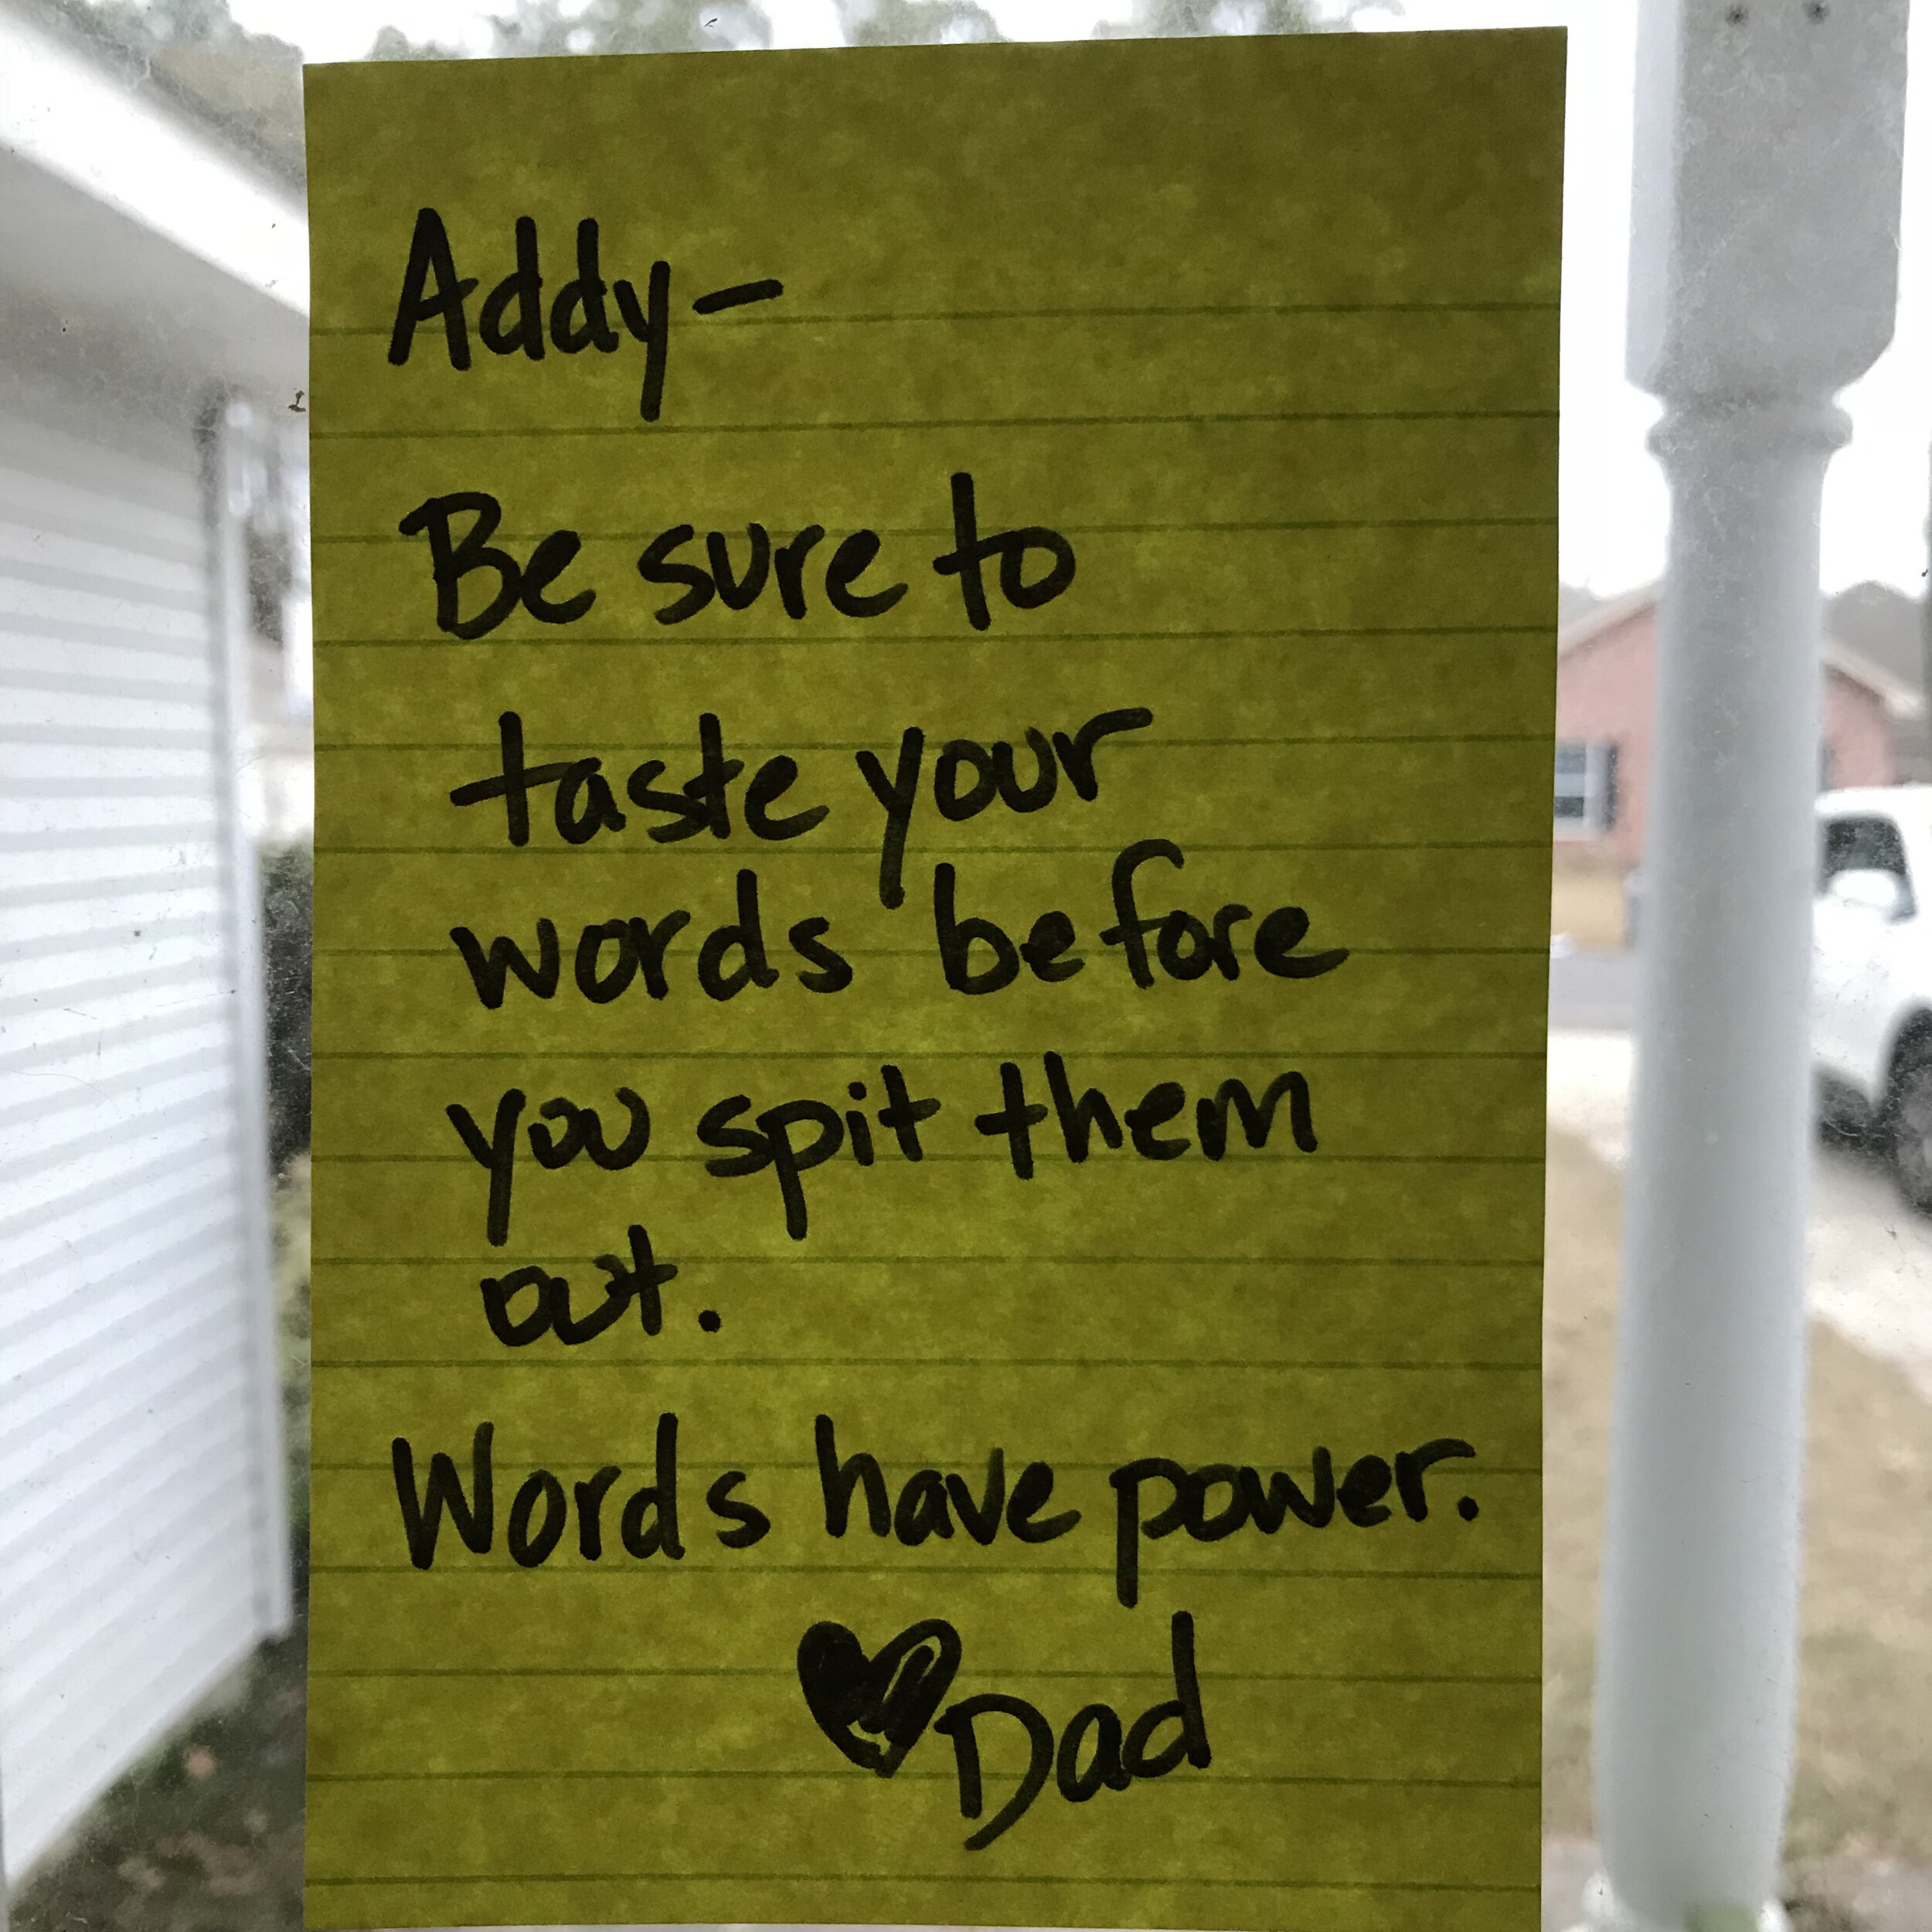 Addy-
Be sure to
taste your
words before
you spit them
out.
Words have power.
♥Dad